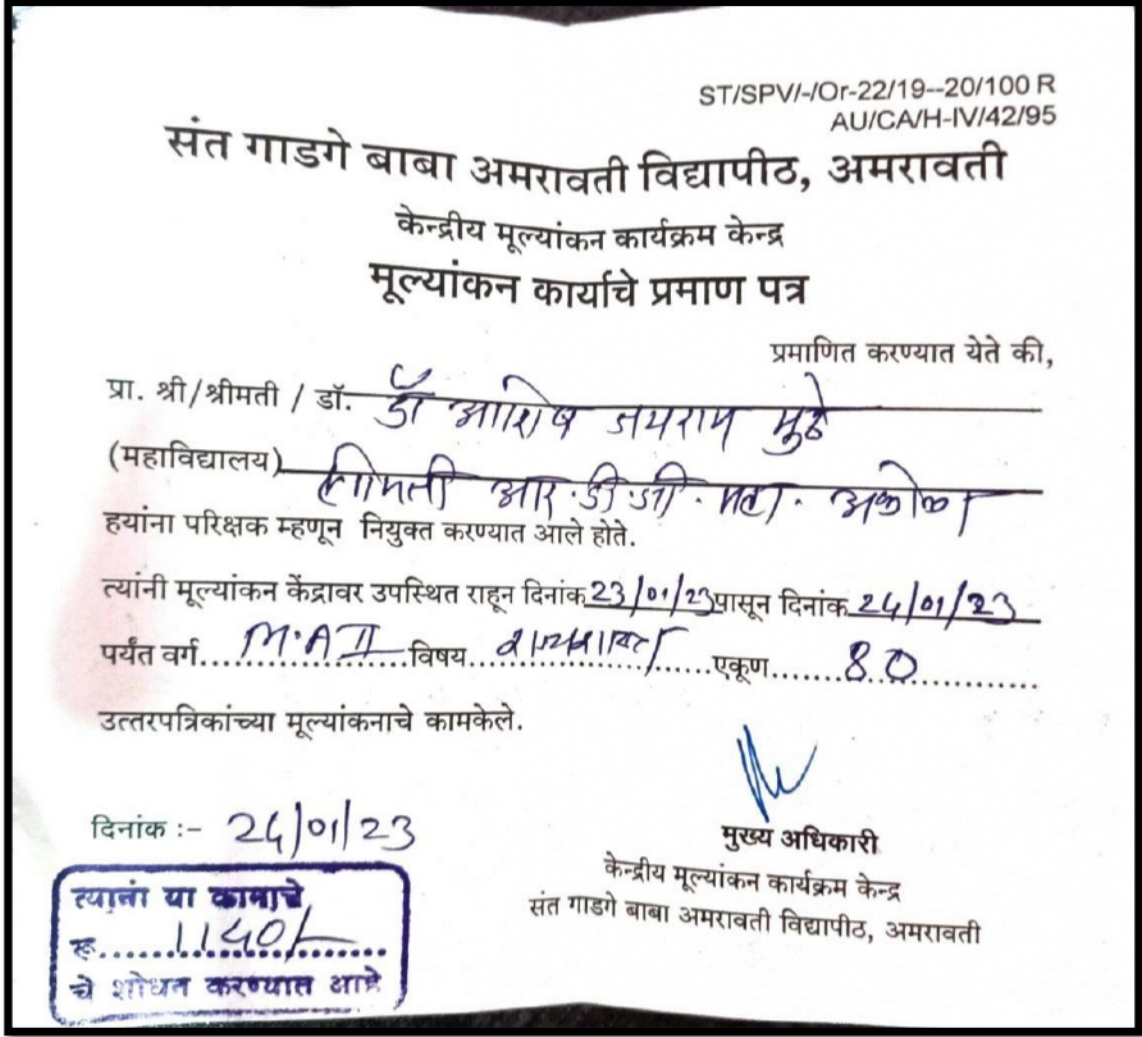 ST/SPV/-/Or-22/19--20/100 R
AU/CA/H-IV/42/95
संत गाडगे बाबा अमरावती विद्यापीठ, अमरावती
केन्द्रीय मूल्यांकन कार्यक्रम केन्द्र
मूल्यांकन कार्याचे प्रमाण पत्र
प्रमाणित करण्यात येते की,
प्रा. श्री/श्रीमती / डॉ. डॉ आशिष जयराम मुढे
(महाविद्यालय) श्रीमती आर.डी.जी. महा. अकोला
हयांना परिक्षक म्हणून नियुक्त करण्यात आले होते.
त्यांनी मूल्यांकन केंद्रावर उपस्थित राहून दिनांक 23/01/23 पासून दिनांक 24/01/23
पर्यंत वर्ग.... M.A II ....विषय.... राज्यशास्त्र ....एकूण.... 80 ....
उत्तरपत्रिकांच्या मूल्यांकनाचे कामकेले.
दिनांक :- 24/01/23
मुख्य अधिकारी
केन्द्रीय मूल्यांकन कार्यक्रम केन्द्र
संत गाडगे बाबा अमरावती विद्यापीठ, अमरावती
त्यानां या कामाचे
रू..... 1140/- .....
चे शोधन करण्यात आहे